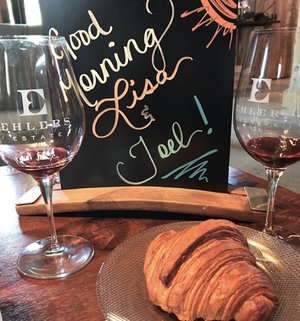 Good
Morning
Lisa
&
Joel!
E
EHLERS
ESTATE
E
EHLERS
ESTATE